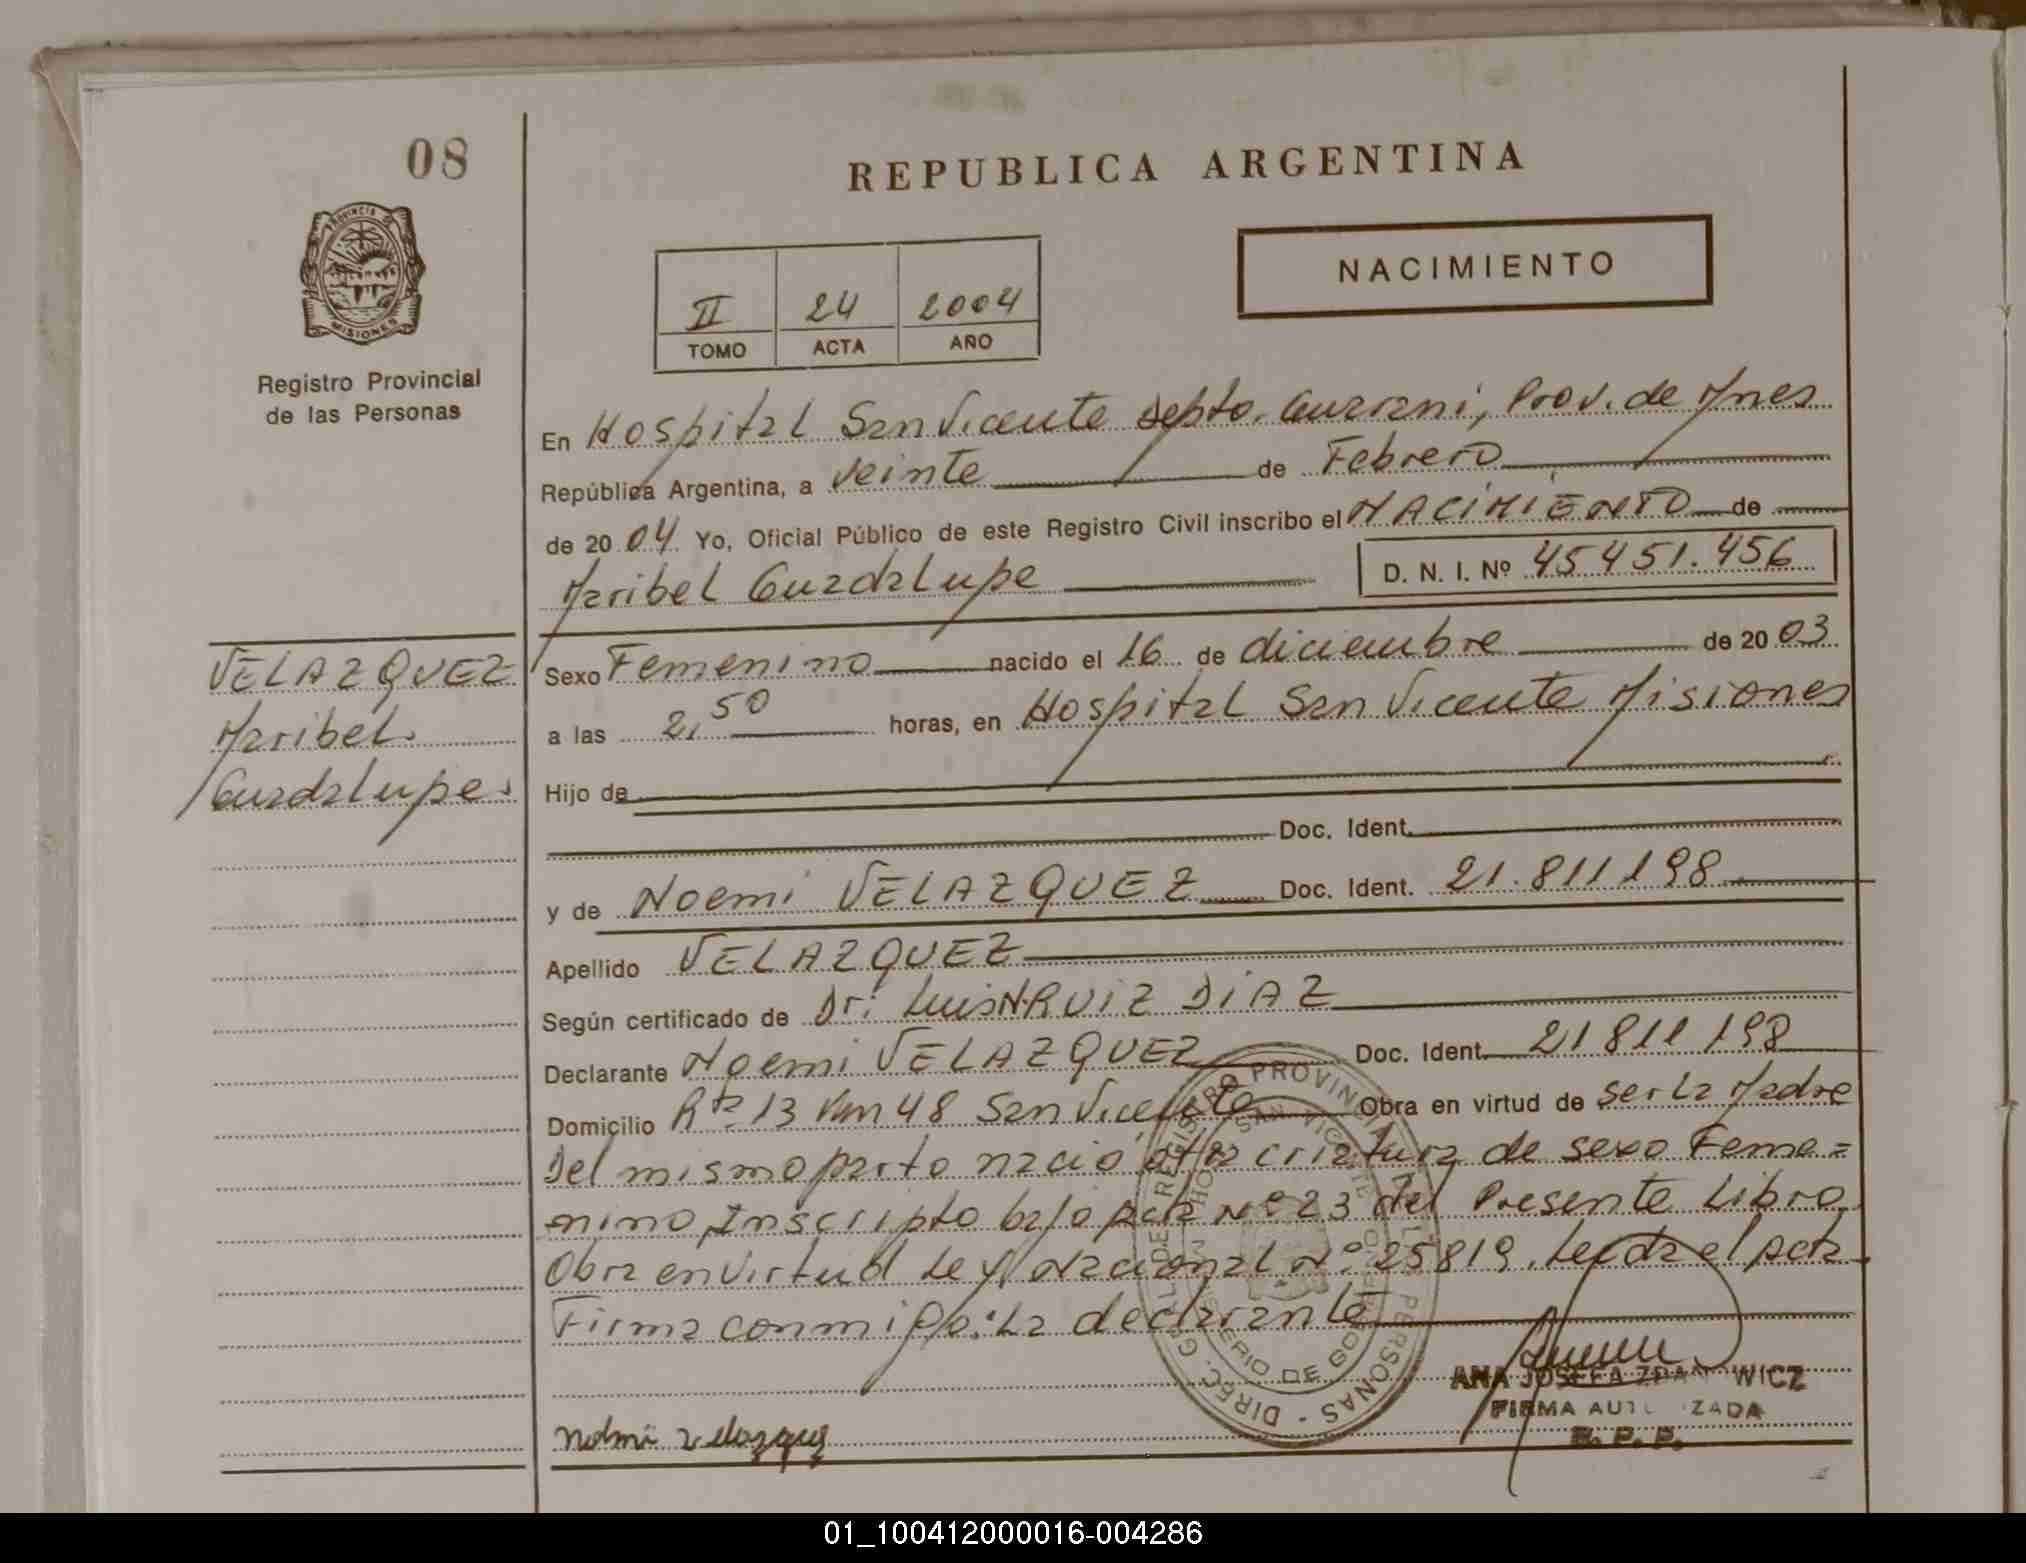 08
REPUBLICA ARGENTINA
PROVINCIA DE
MISIONES
NACIMIENTO
II 24 2004
TOMO ACTA AÑO
Registro Provincial
de las Personas
En Hospital San Vicente Depto. Guarani, Prov. de Mnes
República Argentina, a veinte de Febrero
de 2004 Yo, Oficial Público de este Registro Civil inscribo el NACIMIENTO de
Maribel Guadalupe D. N. I. Nº 45451.456
VELAZQUEZ
Maribel
Guadalupe.
Sexo Femenino nacido el 16 de diciembre de 2003
a las 2,50 horas, en Hospital San Vicente Misiones
Hijo de
Doc. Ident.
y de Noemi VELAZQUEZ Doc. Ident. 21.811198
Apellido VELAZQUEZ
Según certificado de Dr. Luis N. RUIZ DIAZ
Declarante Noemi VELAZQUEZ Doc. Ident. 21811198
Domicilio Rta 13 Km 48 San Vicente Obra en virtud de ser la Madre
Del mismo parto nació otra criatura de sexo Feme=
nino, Inscripto bajo acta Nº 23 del Presente Libro
Obra en virtud Ley Nacional Nº 25819. Leida el Acta
Firma conmigo: La declarante
DIREC. GRAL. DE REGISTRO PROVINCIAL DE LAS PERSONAS
MINISTERIO DE GOBIERNO
ANA JOSEFA ZDANOWICZ
FIRMA AUTORIZADA
R. P. P.
Noemi Velazquez
01_100412000016-004286